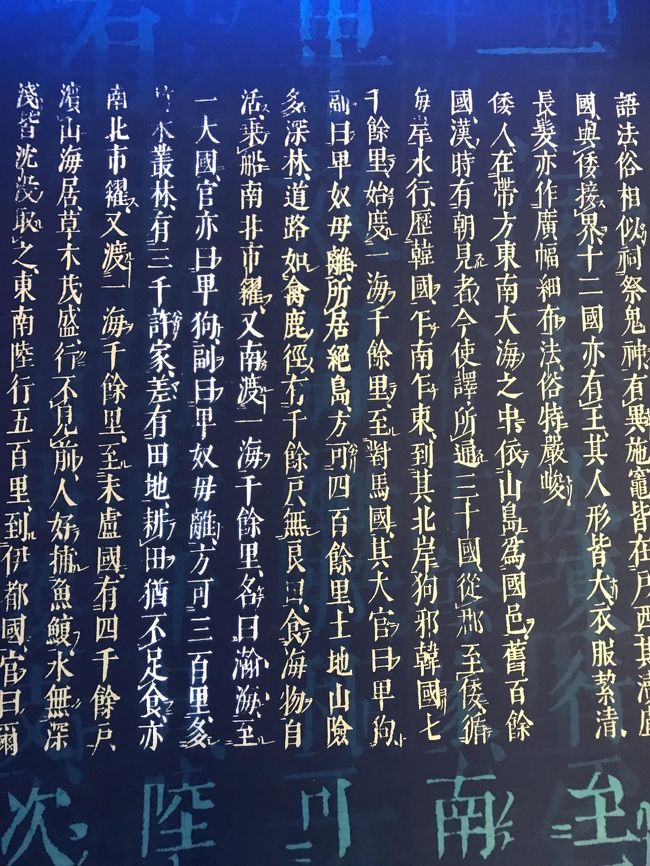 語法俗相似祠祭鬼神有異施竈皆在戸西其瀆盧
國、與倭接界、十二國亦有王、其人形皆大、衣服絜清、
長髮、亦作廣幅細布、法俗特嚴峻
倭人在帶方東南大海之中、依山島爲國邑、舊百餘
國、漢時有朝見者、今使譯所通三十國、從郡至倭、循
海岸水行、歷韓國、乍南乍東、到其北岸狗邪韓國、七
千餘里、始度一海、千餘里、至對馬國、其大官曰卑狗、
副曰卑奴毋離、所居絶島、方可四百餘里、土地山險、
多深林、道路如禽鹿徑、有千餘戸、無良田、食海物自
活、乘船南北市糴、又南渡一海、千餘里、名曰瀚海、至
一大國、官亦曰卑狗、副曰卑奴毋離、方可三百里、多
竹木叢林、有三千許家、差有田地、耕田猶不足食、亦
南北市糴、又渡一海、千餘里、至末盧國、有四千餘戸、
濱山海居、草木茂盛、行不見前人、好捕魚鰒、水無深
淺、皆沈没取之、東南陸行五百里、到伊都國、官曰爾
至
南
可
陸
次